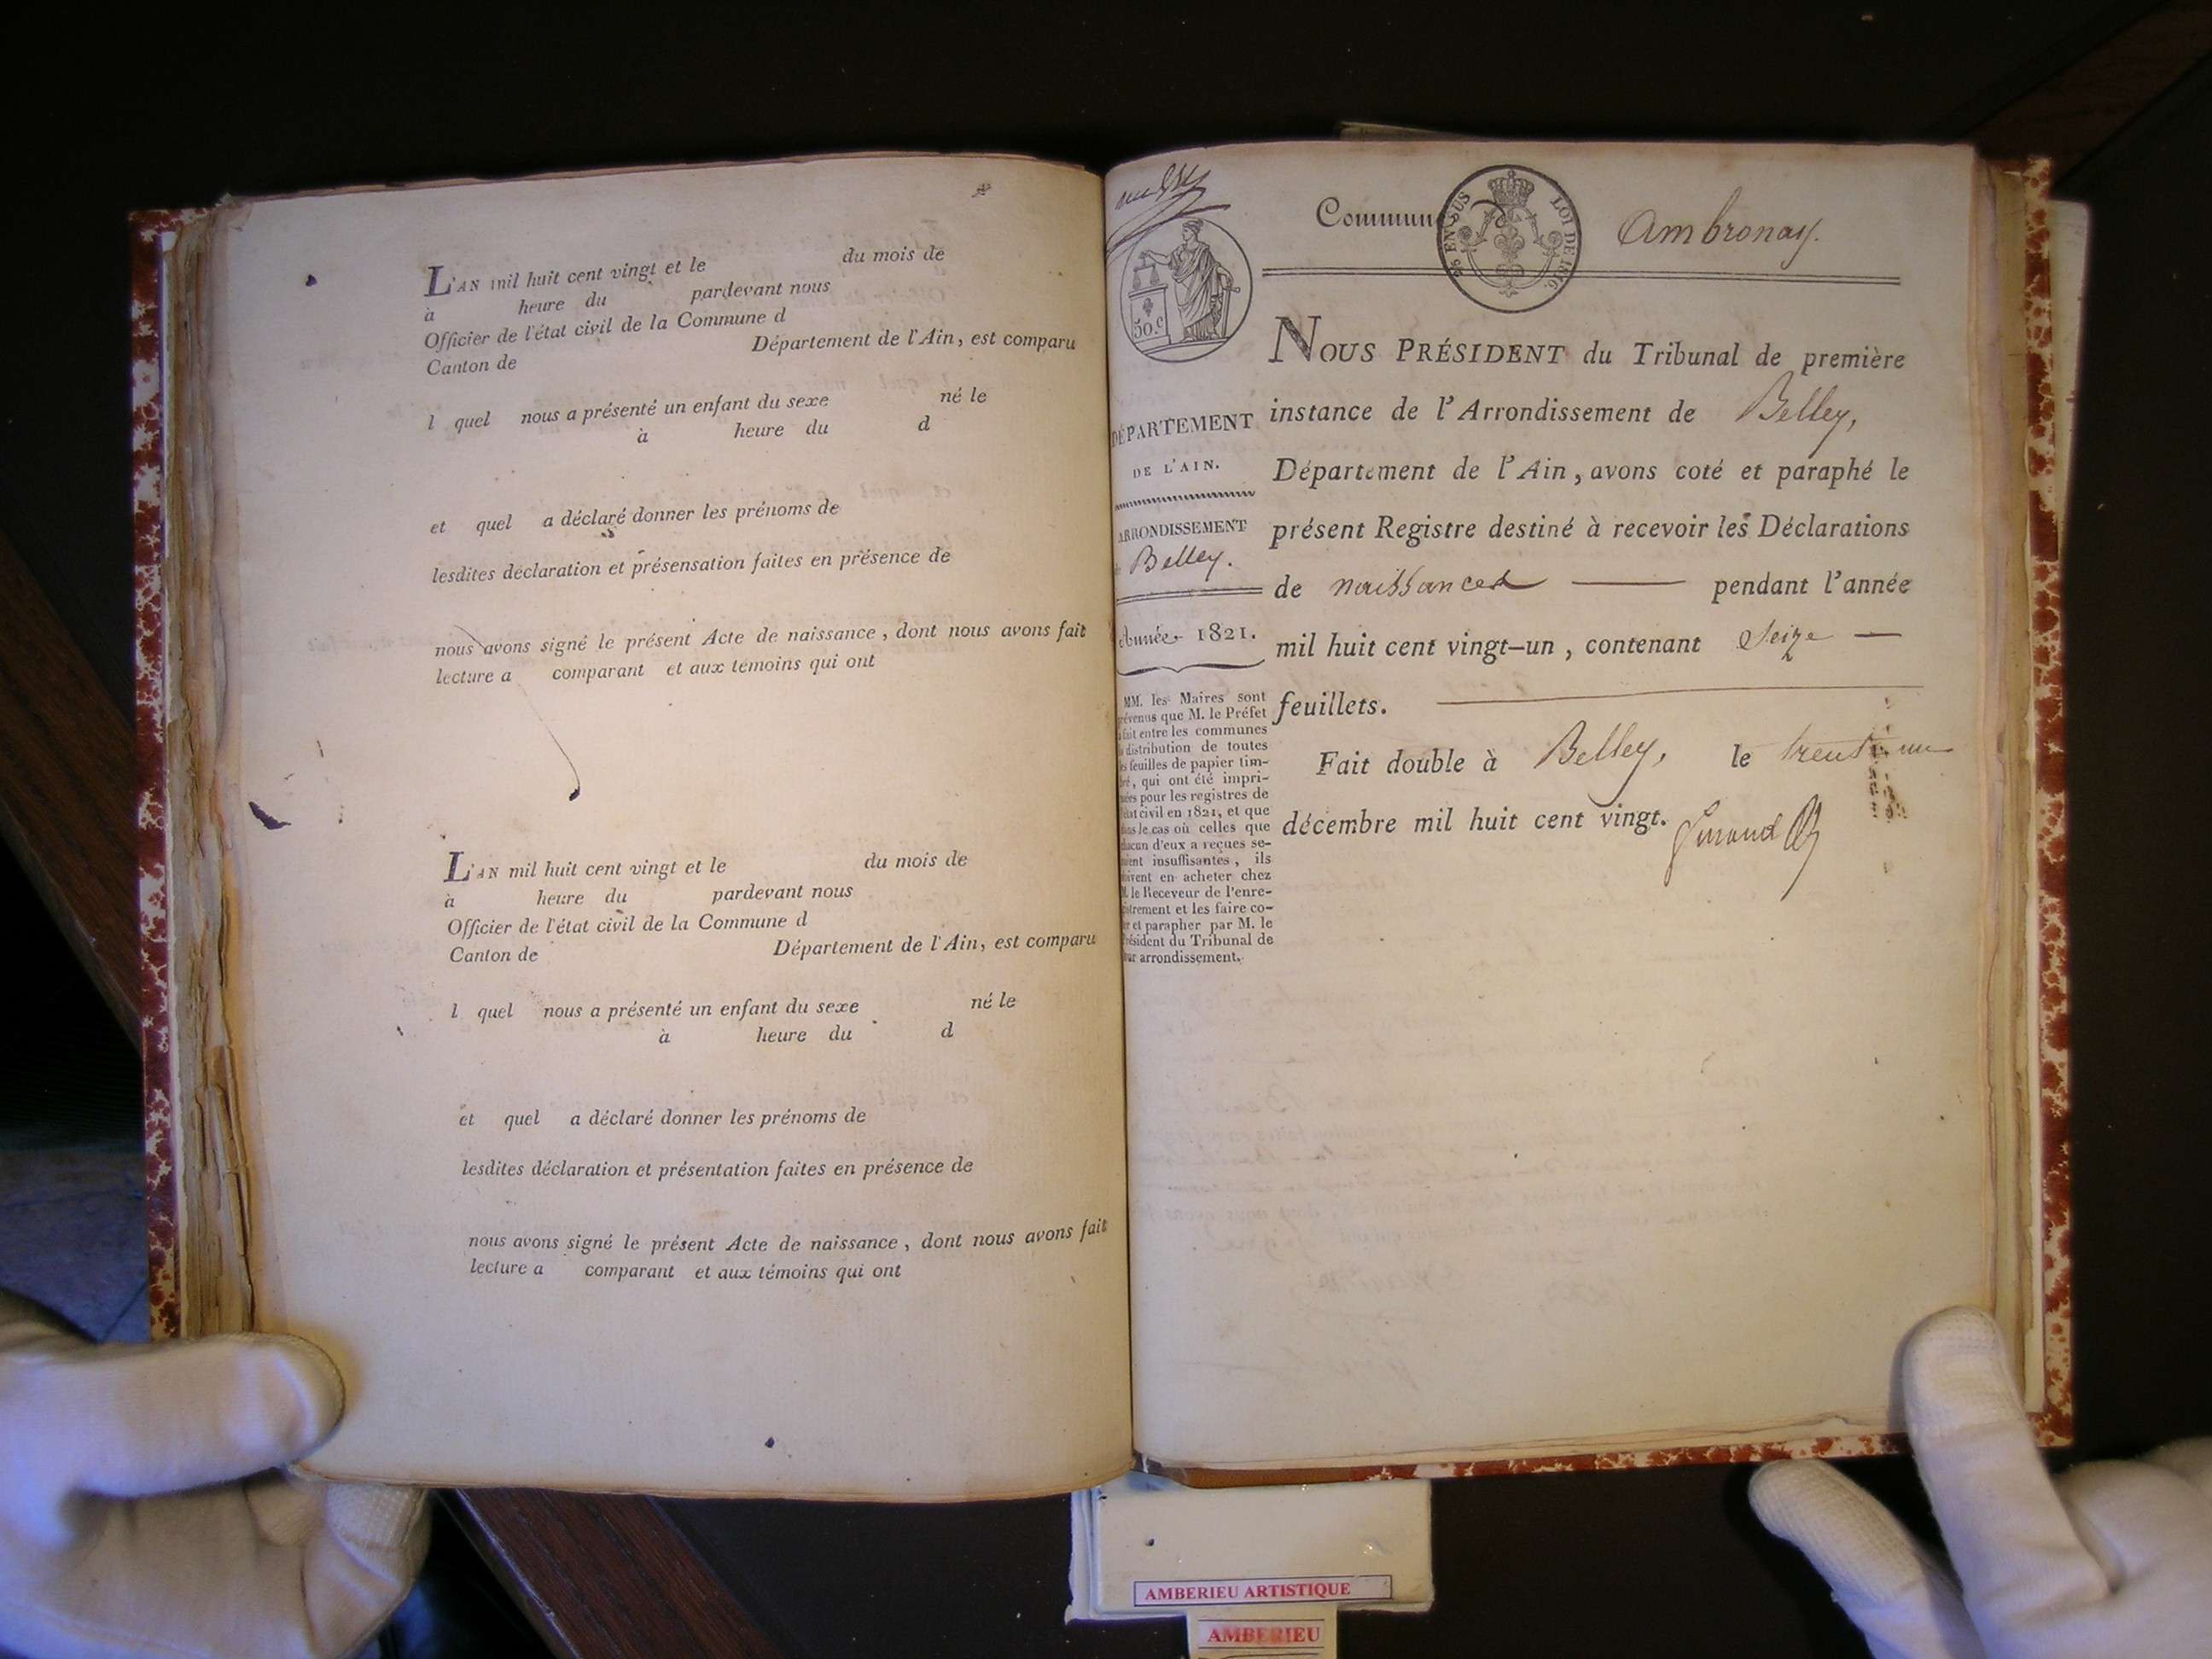 L'AN mil huit cent vingt et le du mois de
à heure du pardevant nous
Officier de l'état civil de la Commune d
Canton de Département de l'Ain, est comparu
l quel nous a présenté un enfant du sexe né le
à heure du d
et quel a déclaré donner les prénoms de
lesdites déclaration et présensation faites en présence de
nous avons signé le présent Acte de naissance, dont nous avons fait
lecture a comparant et aux témoins qui ont
L'AN mil huit cent vingt et le du mois de
à heure du pardevant nous
Officier de l'état civil de la Commune d
Canton de Département de l'Ain, est comparu
l quel nous a présenté un enfant du sexe né le
à heure du d
et quel a déclaré donner les prénoms de
lesdites déclaration et présentation faites en présence de
nous avons signé le présent Acte de naissance, dont nous avons fait
lecture a comparant et aux témoins qui ont
Commune Ambronay.
LOI DE 1816.
50.c
DÉPARTEMENT
DE L'AIN.
ARRONDISSEMENT
Belley.
Année 1821.
MM. les Maires sont
prévenus que M. le Préfet
a fait entre les communes
la distribution de toutes
les feuilles de papier tim-
bré, qui ont été impri-
mées pour les registres de
l'état civil en 1821, et que
dans le cas où celles que
chacun d'eux a reçues se-
raient insuffisantes, ils
doivent en acheter chez
M. le Receveur de l'enre-
gistrement et les faire co-
ter et parapher par M. le
Président du Tribunal de
leur arrondissement.
NOUS PRÉSIDENT du Tribunal de première
instance de l'Arrondissement de Belley,
Département de l'Ain, avons coté et paraphé le
présent Registre destiné à recevoir les Déclarations
de naissances pendant l'année
mil huit cent vingt-un, contenant Seize
feuillets.
Fait double à Belley, le trente un
décembre mil huit cent vingt.
AMBERIEU ARTISTIQUE
AMBERIEU